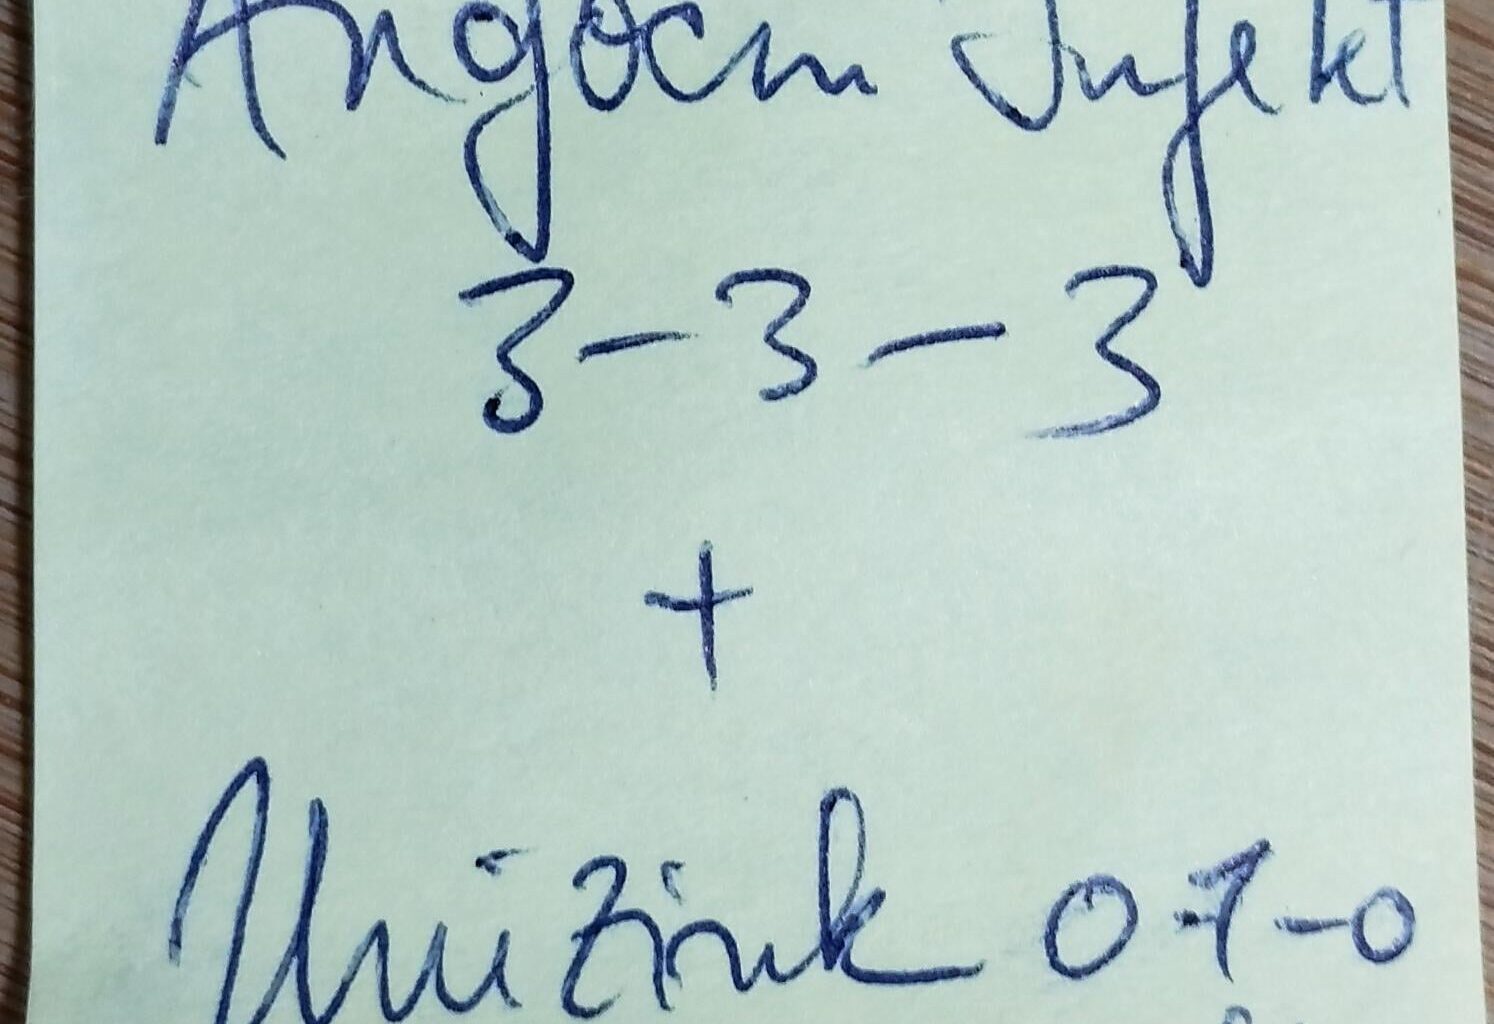 Angocin Infekt
3-3-3
+
Unizink 0-1-0